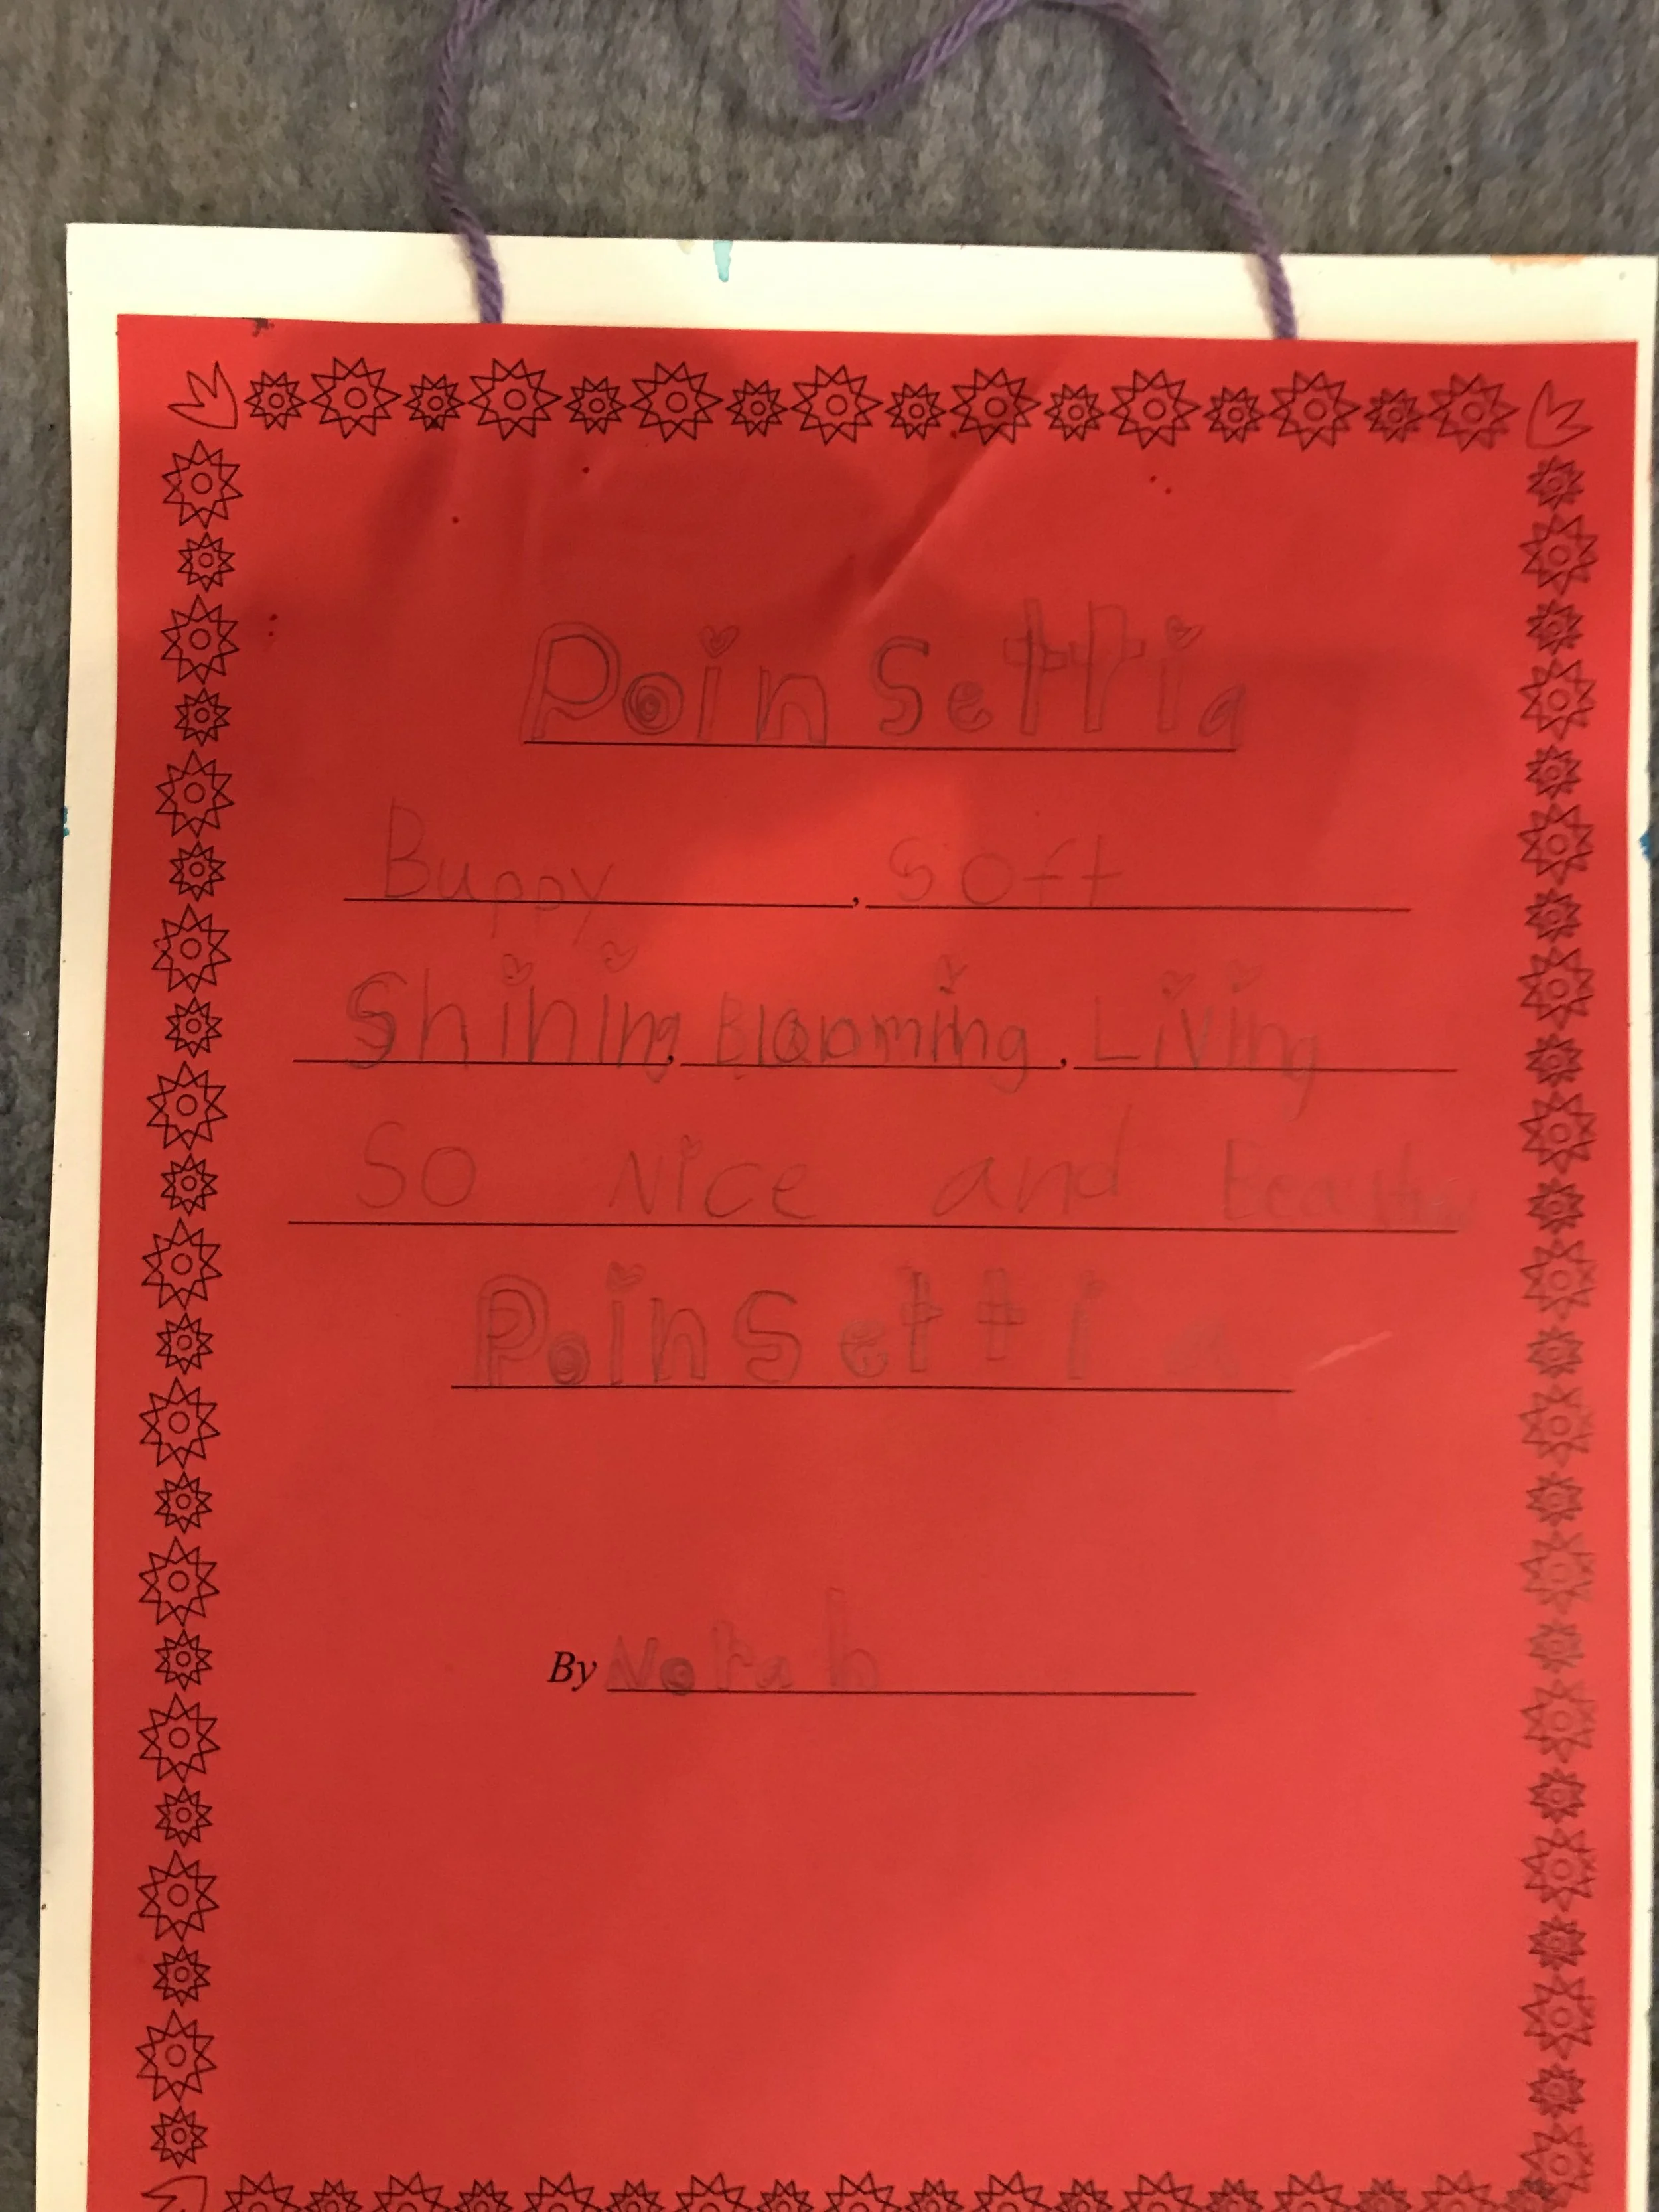 Poinsettia
Buppy, Soft
Shining, Blooming, Living
So Nice and
Poinsettia
By Norah